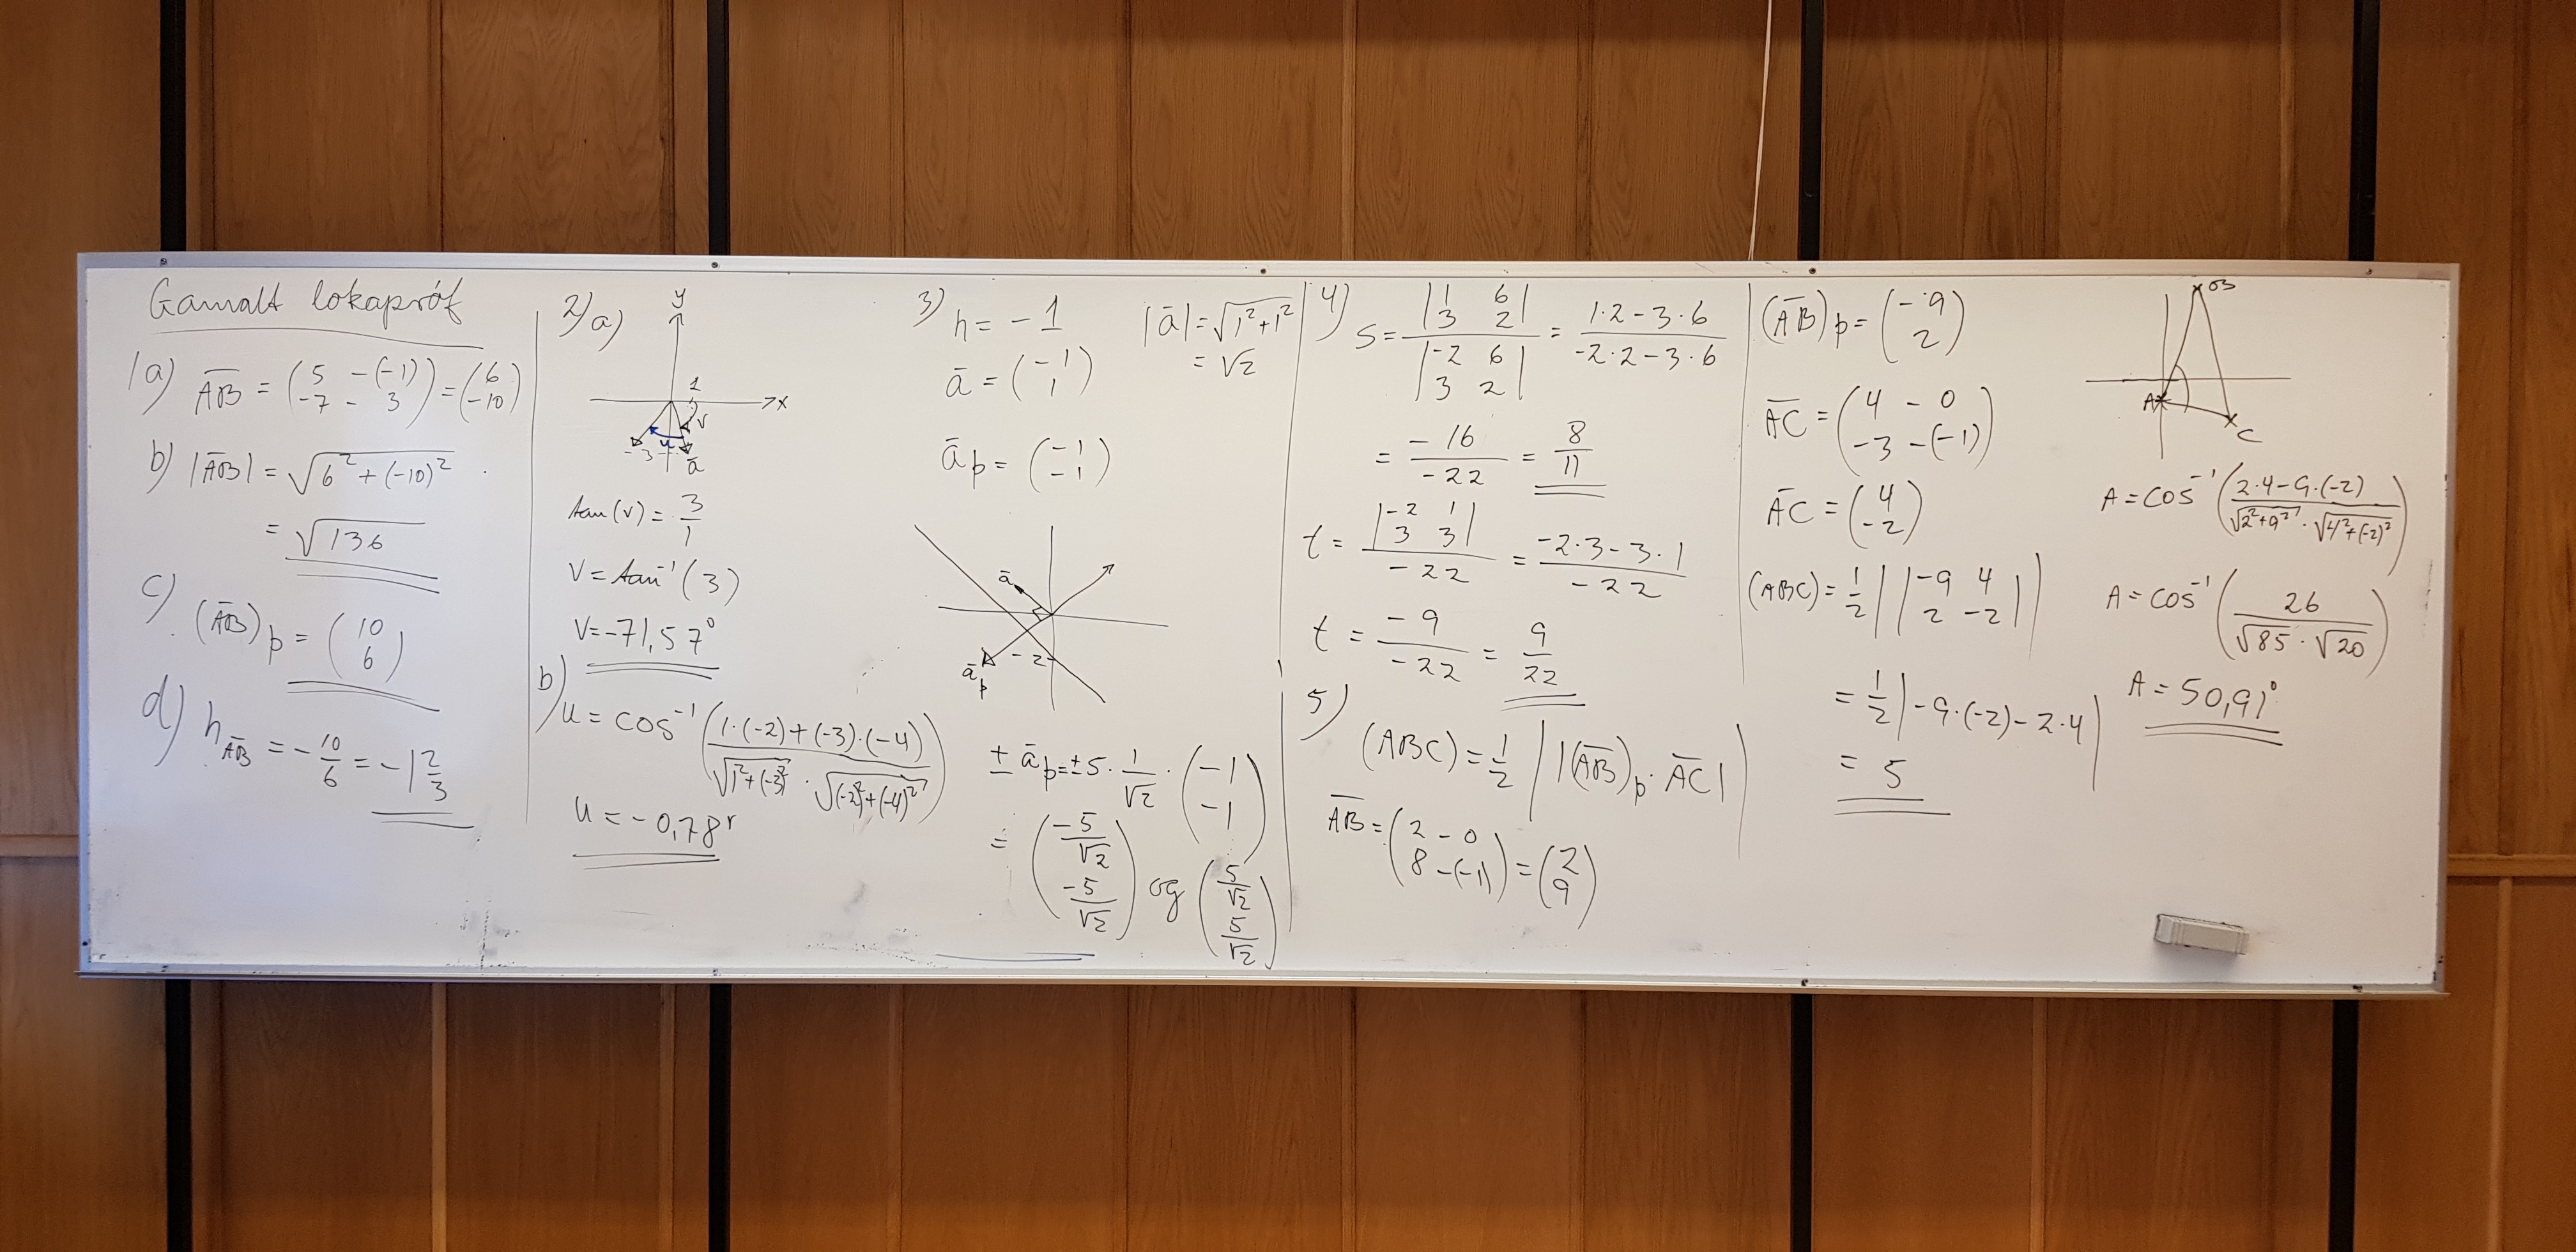 Gamalt lokapróf
1a) AB̄ = (5 - (-1) / -7 - 3) = (6 / -10)
b) |AB̄| = √(6² + (-10)²)
= √136
c) (AB̄)p = (10 / 6)
d) h AB̄ = -10/6 = -1 2/3
2) a)
y
1
x
v
u
-3
ā
tan(v) = 3/1
v = tan⁻¹(3)
v = -71,57°
b) u = cos⁻¹((1·(-2) + (-3)·(-4)) / (√(1²+(-3)²) · √((-2)²+(-4)²)))
u = -0,78ʳ
3) h = -1
|ā| = √(1²+1²)
= √2
ā = (-1 / 1)
āp = (-1 / -1)
ā
-2
āp
± āp = ±5 · 1/√2 · (-1 / -1)
= (-5/√2 / -5/√2) og (5/√2 / 5/√2)
4) s = |1 6 / 3 2| / |-2 6 / 3 2| = (1·2 - 3·6) / (-2·2 - 3·6)
= -16 / -22 = 8/11
t = |-2 1 / 3 3| / -22 = (-2·3 - 3·1) / -22
t = -9 / -22 = 9/22
5)
(ABC) = 1/2 | |(AB̄)p · AC̄| |
AB̄ = (2 - 0 / 8 - (-1)) = (2 / 9)
(AB̄)p = (-9 / 2)
AC̄ = (4 - 0 / -3 - (-1))
AC̄ = (4 / -2)
(ABC) = 1/2 | |-9 4 / 2 -2| |
= 1/2 |-9·(-2) - 2·4|
= 5
B
A
C
A = cos⁻¹((2·4 - 9·(-2)) / (√(2²+9²) · √(4²+(-2)²)))
A = cos⁻¹(26 / (√85 · √20))
A = 50,91°